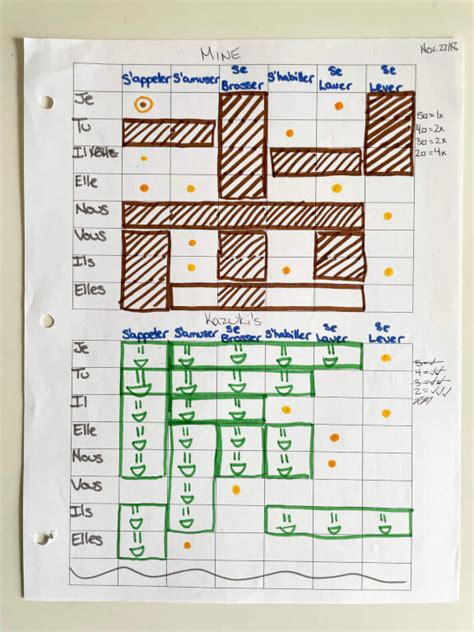 MINE
Nov. 27/18
S'appeler S'amuser Se Brosser S'habiller Se Laver Se Lever
Je
Tu
Il
Elle
Nous
Vous
Ils
Elles
50=1x
40=2x
30=2x
20=4x
Kazuki's
S'appeler S'amuser Se Brosser S'habiller Se Laver Se Lever
Je
Tu
Il
Elle
Nous
Vous
Ils
Elles
5=✓
4=✓✓
3=✓✓
2=✓✓✓